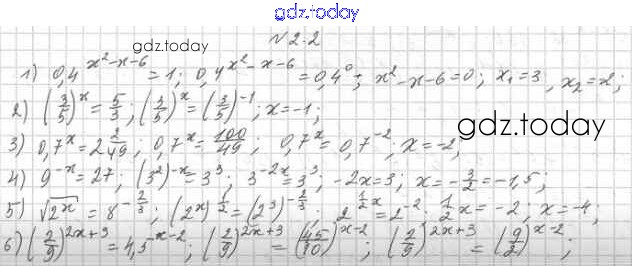 gdz.today
№2.2
gdz.today
1) 0,4^{x²-x-6} = 1; 0,4^{x²-x-6} = 0,4⁰; x²-x-6=0; x₁=3, x₂=2;
2) (3/5)^x = 5/3; (3/5)^x = (3/5)^{-1}; x=-1;
gdz.today
3) 0,7^x = 2 2/49; 0,7^x = 100/49; 0,7^x = 0,7^{-2}; x=-2;
4) 9^{-x} = 27; (3²)^{-x} = 3³; 3^{-2x} = 3³; -2x=3; x=-3/2=-1,5;
5) √2^x = 8^{-2/3}; (2^x)^{1/2} = (2³)^{-2/3}; 2^{1/2x} = 2^{-2}; 1/2x = -2; x=-4;
6) (2/9)^{2x+3} = 4,5^{x-2}; (2/9)^{2x+3} = (45/10)^{x-2}; (2/9)^{2x+3} = (9/2)^{x-2};